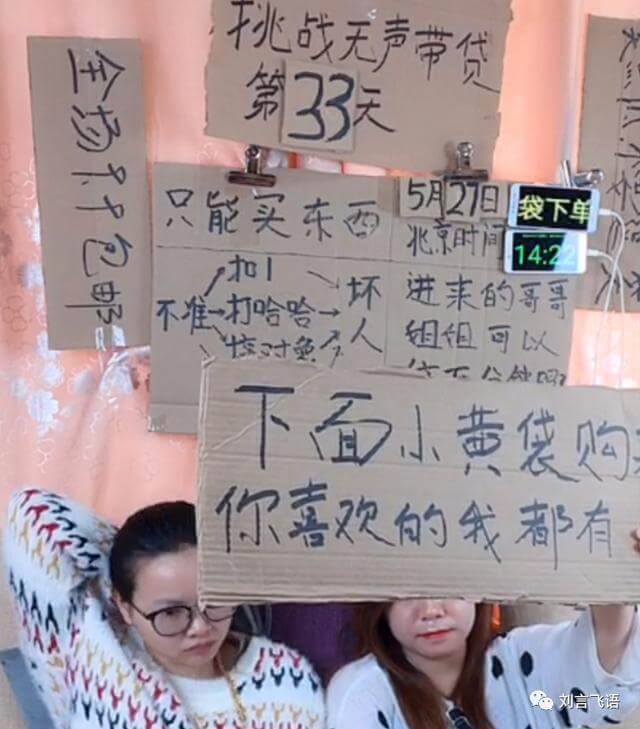 挑战无声带贷
第33天
全场9.9包邮
只能买东西
5月27日
北京时间
袋下单
14:22
扣1
不准打哈哈坏
人
进来的哥哥
姐姐可以
下面小黄袋购
你喜欢的我都有
刘言飞语